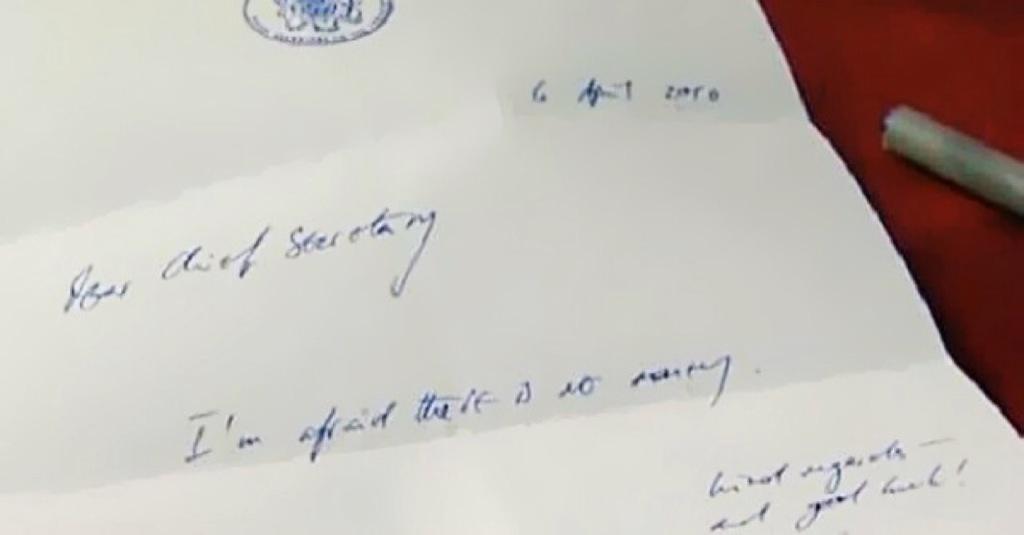 6 April 2010
Dear Chief Secretary
I'm afraid there is no money.
Kind regards —
and good luck!